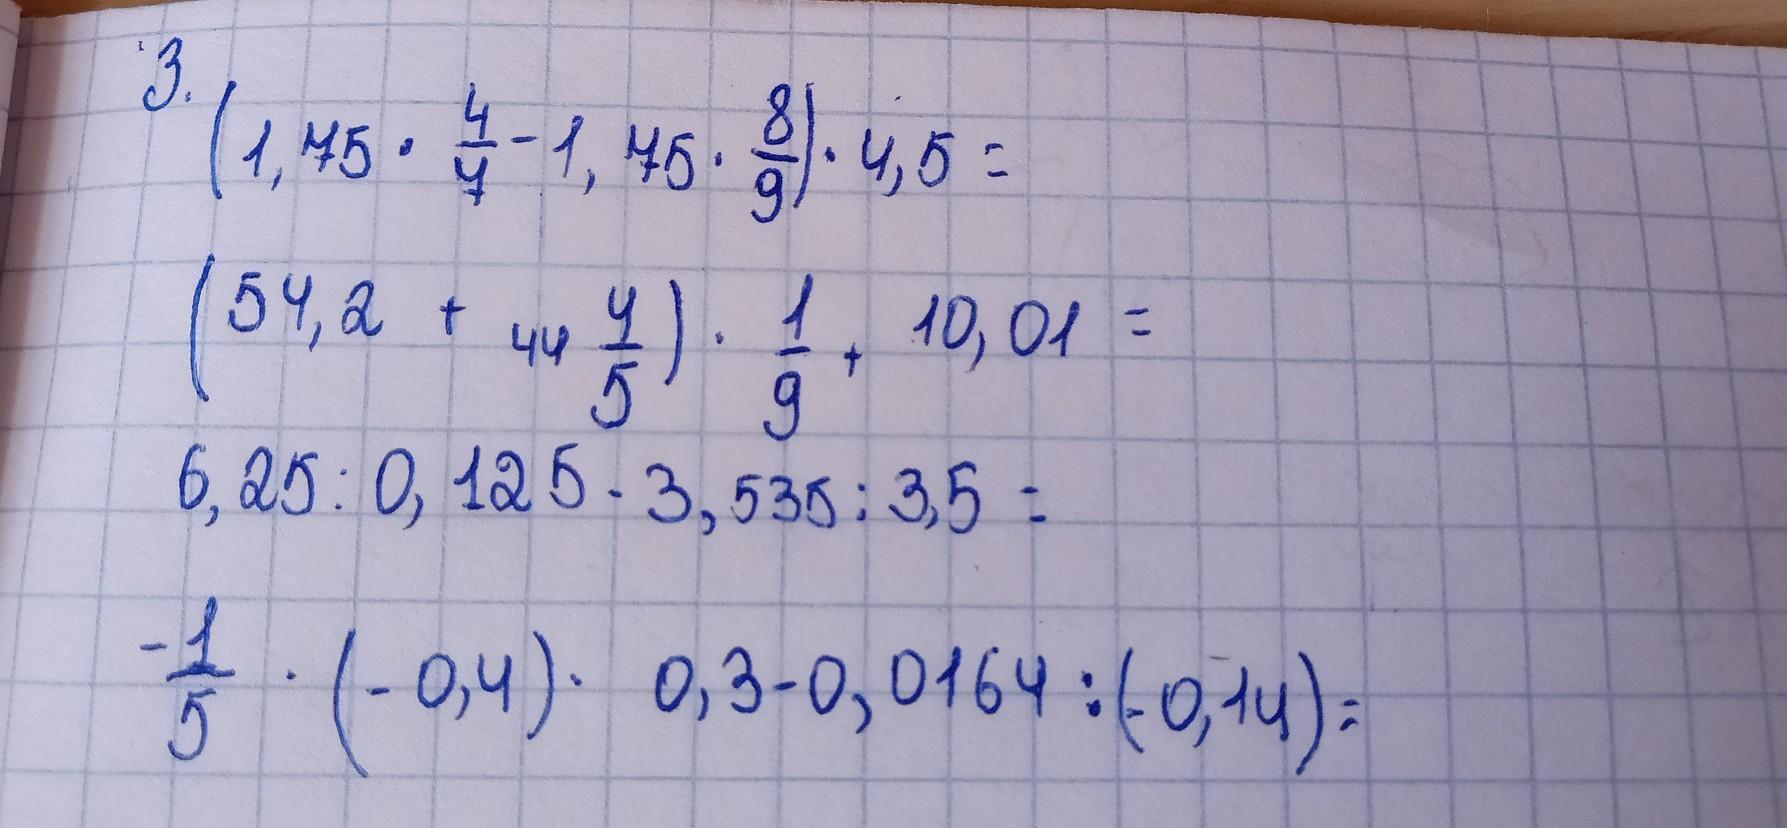 3.
(1,75 · 4/7 - 1,75 · 8/9) · 4,5 =
(54,2 + 44 4/5) · 1/9 + 10,01 =
6,25 : 0,125 - 3,535 : 3,5 =
-1/5 · (-0,4) · 0,3 - 0,0164 : (-0,14) =